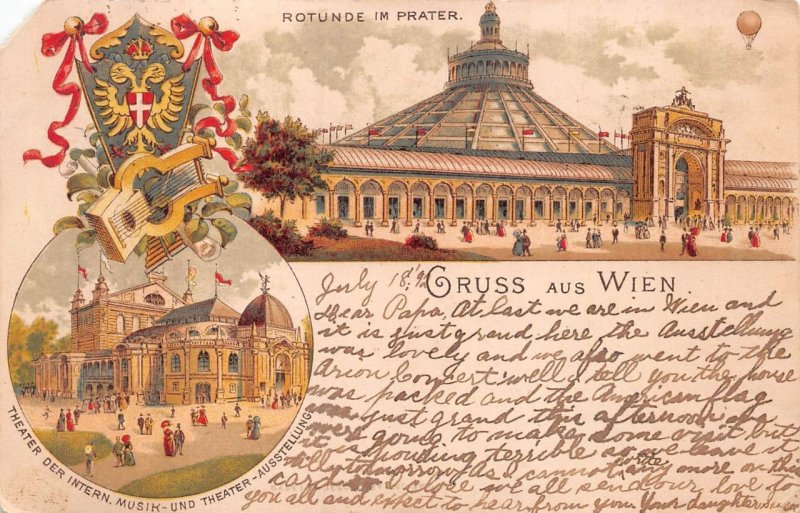 ROTUNDE IM PRATER.
GRUSS AUS WIEN.
THEATER DER INTERN. MUSIK- UND THEATER-AUSSTELLUNG
July 18. '92
Dear Papa, At last we are in Wien and
it is just grand here the Ausstellung
was lovely and we also went to the
Arion Concert well I tell you the house
was packed and the American flag
was just grand this afternoon we
were going to make some visit but
it is pouring terrible so we leave it
till tomorrow. As I cannot write any more on this
card I close we all send our love to
you all and expect to hear from you Your daughter